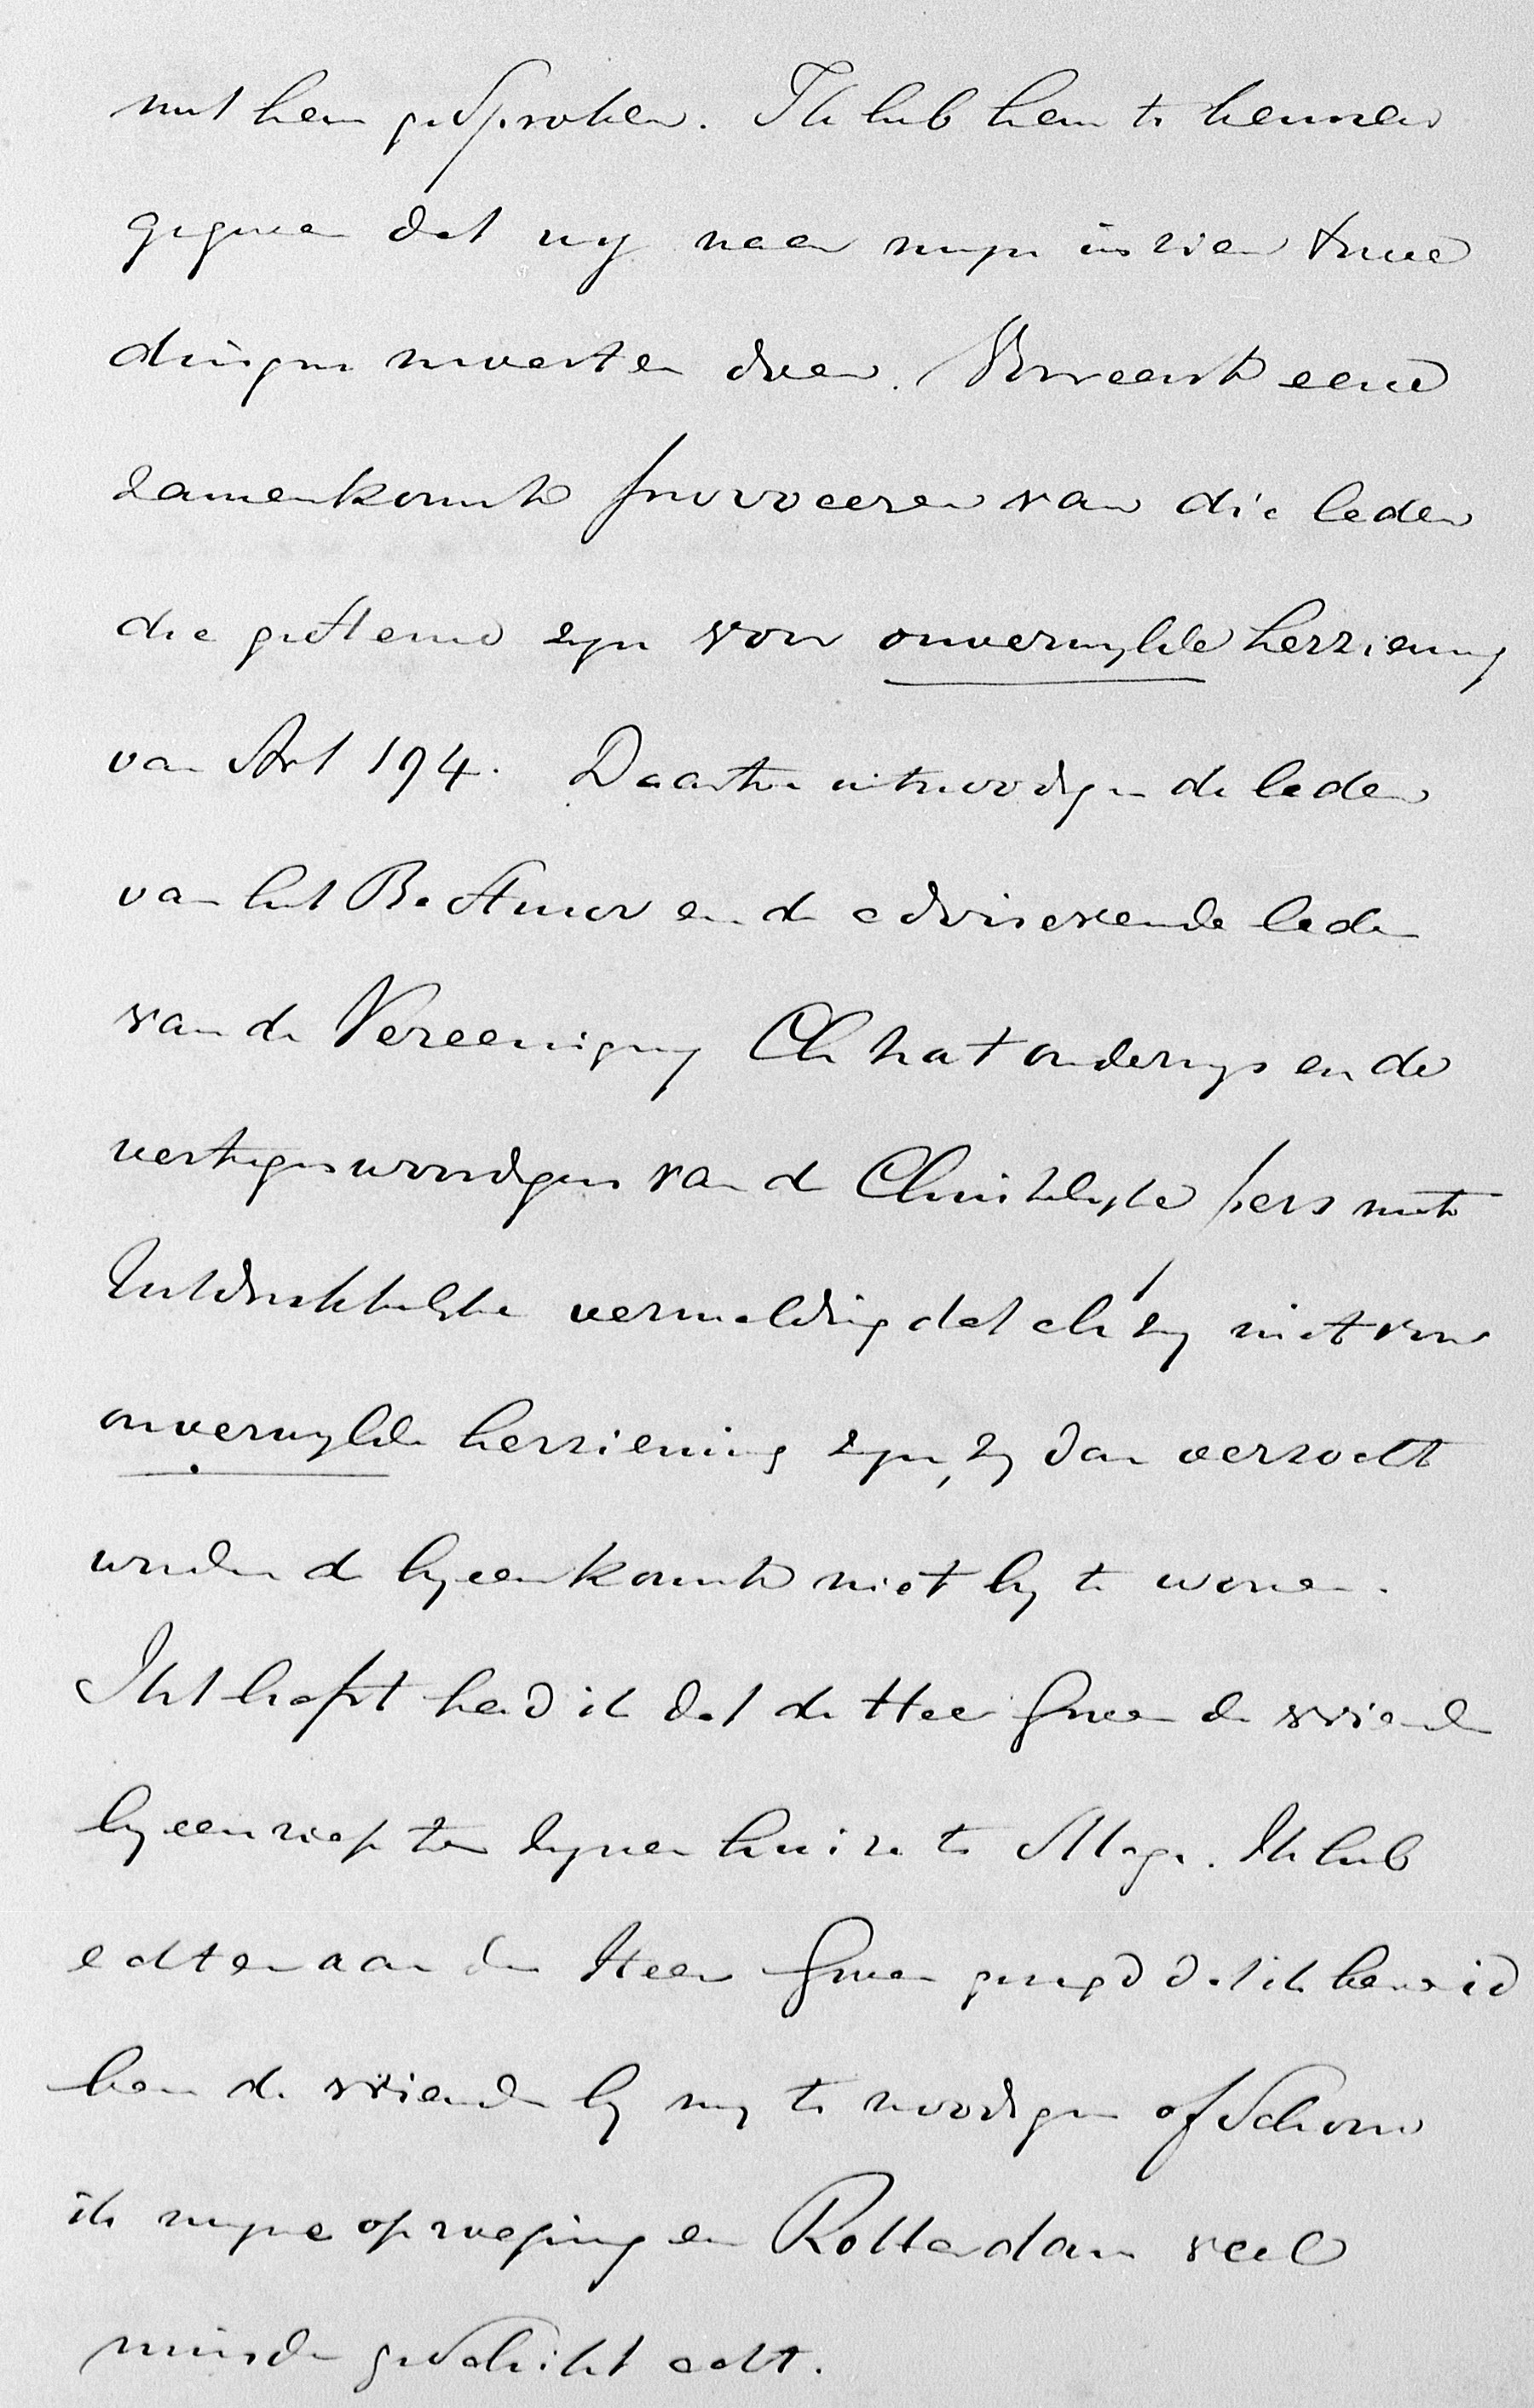 met hem gesproken. Ik heb hem te kennen
gegeven dat wij naar mijn inzien twee
dingen moesten doen. Vooreerst eene
zamenkomst provoceeren van die leden
die gestemd zijn voor onverwijlde herziening
van Art 194. Daartoe uitnoodigen de leden
van het Bestuur en de adviserende leden
van de Vereeniging Ch nat onderwijs en de
vertegenwoordigers van de Christelijke pers met
uitdrukkelijke vermelding dat als zij niet voor
onverwijlde herziening zijn, zij dan verzocht
worden de bijeenkomst niet bij te wonen.
Het liefst had ik dat de Heer Groen de vrienden
bijeenriep ten zijnen huize te 's Hage. Ik heb
echter aan den Heer Groen gezegd dat ik bereid
ben de vrienden bij mij te noodigen ofschoon
ik mijne oproeping en Rotterdam veel
minder geschikt acht.